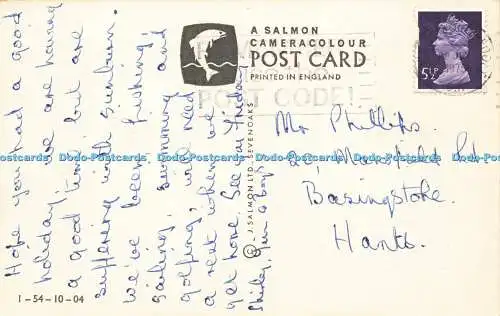 Hope you had a good
holiday, we are having
a good time but are
suffering with sunburn.
We've been fishing,
sailing, swimming and
golfing, will need
a rest when we
get home. See you Friday
Shirley, Jim & boys
A SALMON
CAMERACOLOUR
POST CARD
PRINTED IN ENGLAND
POST CODE!
© J. SALMON LTD., SEVENOAKS
5½P
Mr Phillips
Mansfield Rd
Basingstoke.
Hants.
1-54-10-04
Dodo-Postcards Dodo-Postcards Dodo-Postcards Dodo-Postcards Dodo-Postcards Dodo-Postcards Dodo-Postcards